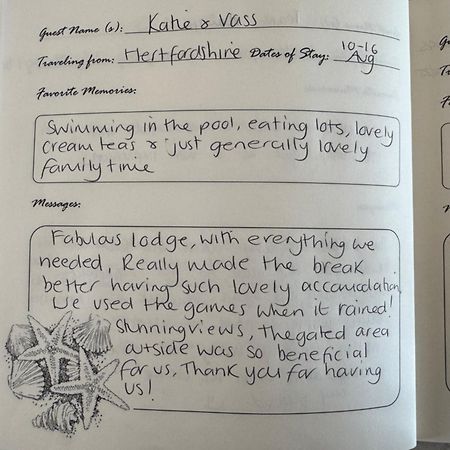 Guest Name (s): Katie & Vass
Traveling from: Hertfordshire Dates of Stay: 10-16 Aug
Favorite Memories:
Swimming in the pool, eating lots, lovely
cream teas & just generally lovely
family time
Messages:
Fabulous lodge, with everything we
needed, Really made the break
better having such lovely accomodation
We used the games when it rained!
Stunning views, the gated area
outside was so beneficial
for us, Thank you for having
us!